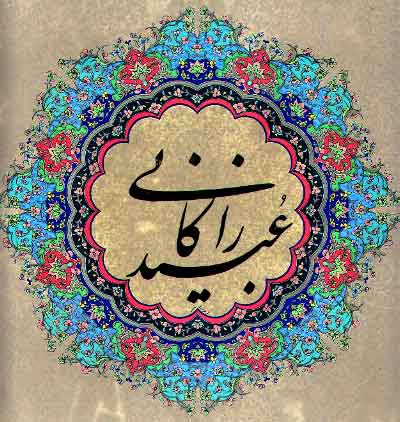 عُبید زاکانی